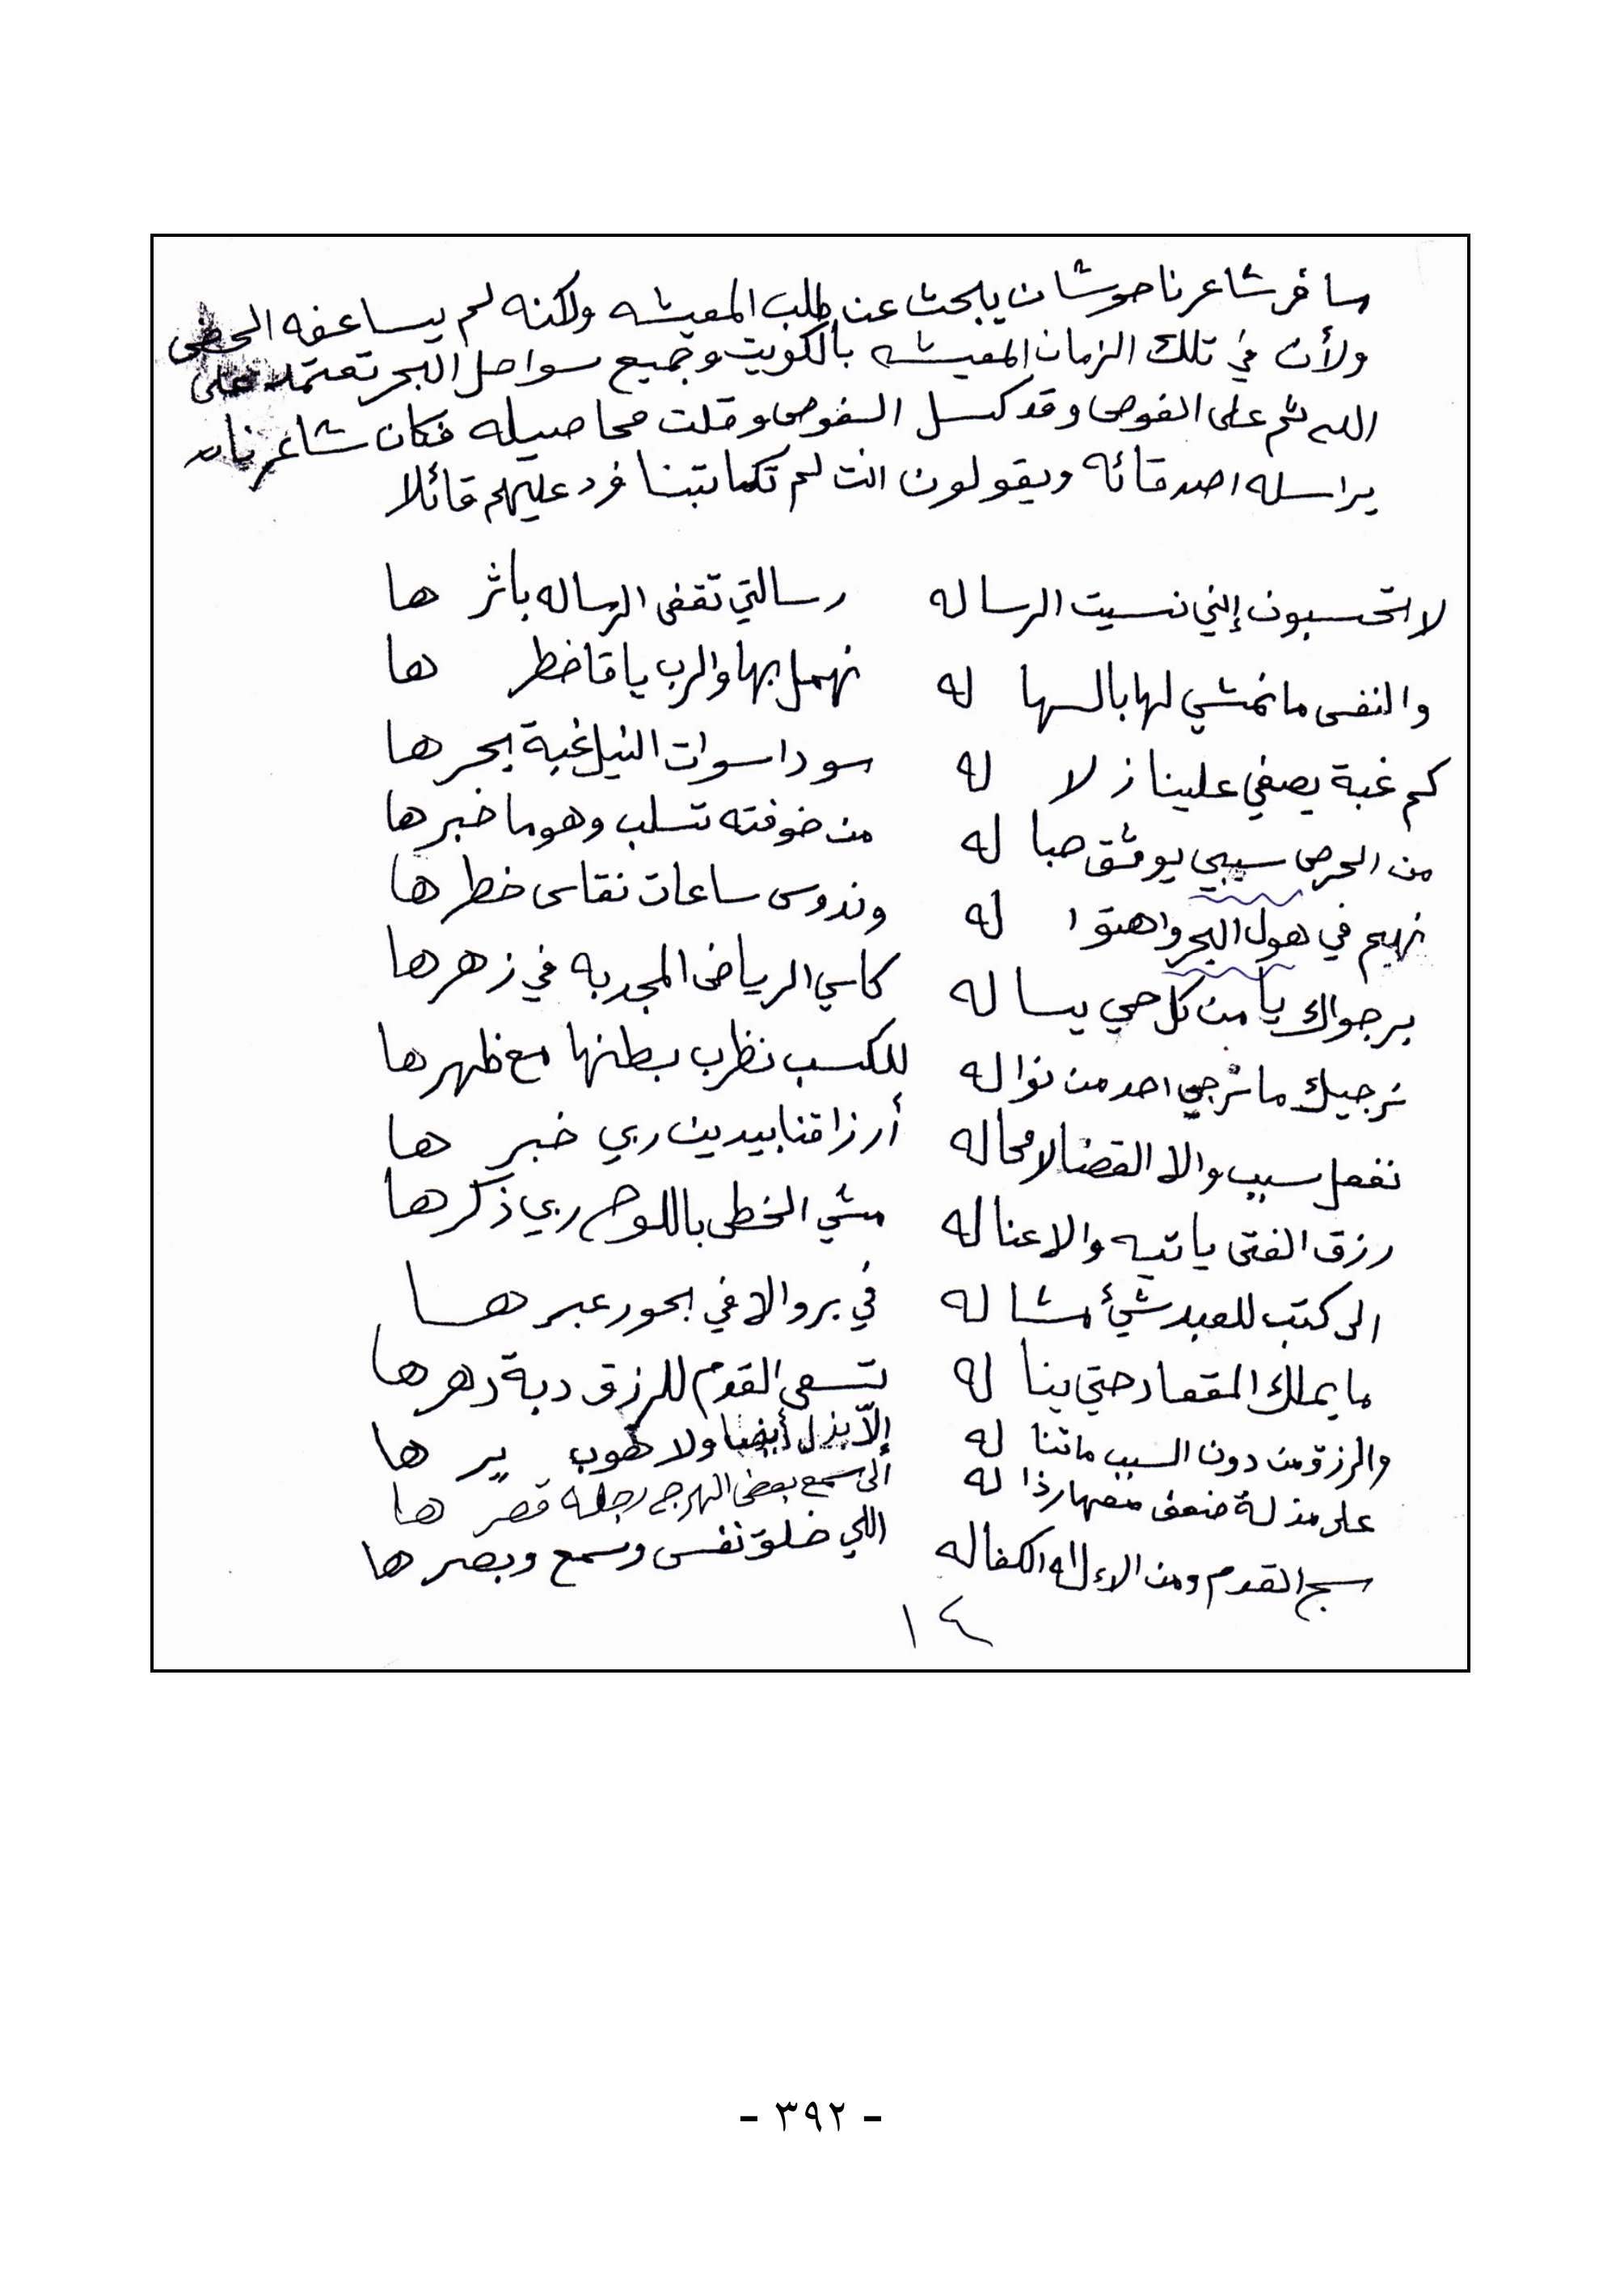 سافر شاعرنا حوشان يبحث عن طلب المعيشه ولكنه لم يساعفه الحض
ولأن في تلك الزمان المعيشه بالكويت وجميع سواحل البحر تعتمد على
الله ثم على الغوص وقد كسل الغوص وقلت محاصيله فكان شاعرنا
يراسله اصدقائه ويقولون انت لم تكاتبنا فرد عليهم قائلا
لا تحسبون إنني نسيت الرساله رسالتي تقفى الرساله بأثر ها
والنفس ما نمشي لها بالسها له نهمل بها والرب ياقا خطر ها
كم غبة يصفي علينا زلا له سودا سوات النيل غبة بحر ها
من الحرص سيبي يوثق حبا له من خوفته تسلب وهو ما خبرها
نهيم في هول البحر واهتوا له وندوس ساعات نقاسى خطرها
يرجواك يا من كل حي يسا له كاسي الرياض المجدبه في زهرها
نرجيك ما نرجي احد من نواله للكسب نظرب بطنها مع ظهرها
نفعل سبب والا القضا لا محاله أرزاقنا بيدين ربي خبير ها
رزق الفتى ياتيه والا عنا له مشي الخطى باللوح ربي ذكرها
الى كتب للعبد شئٍ مشا له في بر والا في بحور عبر هـا
ما يملك المقعاد حتي ينا له تسعى القدم للرزق دبة دهرها
والرزق من دون السبب ماتنا له إلاّ بذل أيضا ولا ير ها
على مذلة ضعف معها رذا له الى سمع بعض الهرج رجله قصر ها
سج القدم ومن الاله الكفاله اللي خلق نفس وسمع وبصر ها
١٤
- ٣٩٢ -